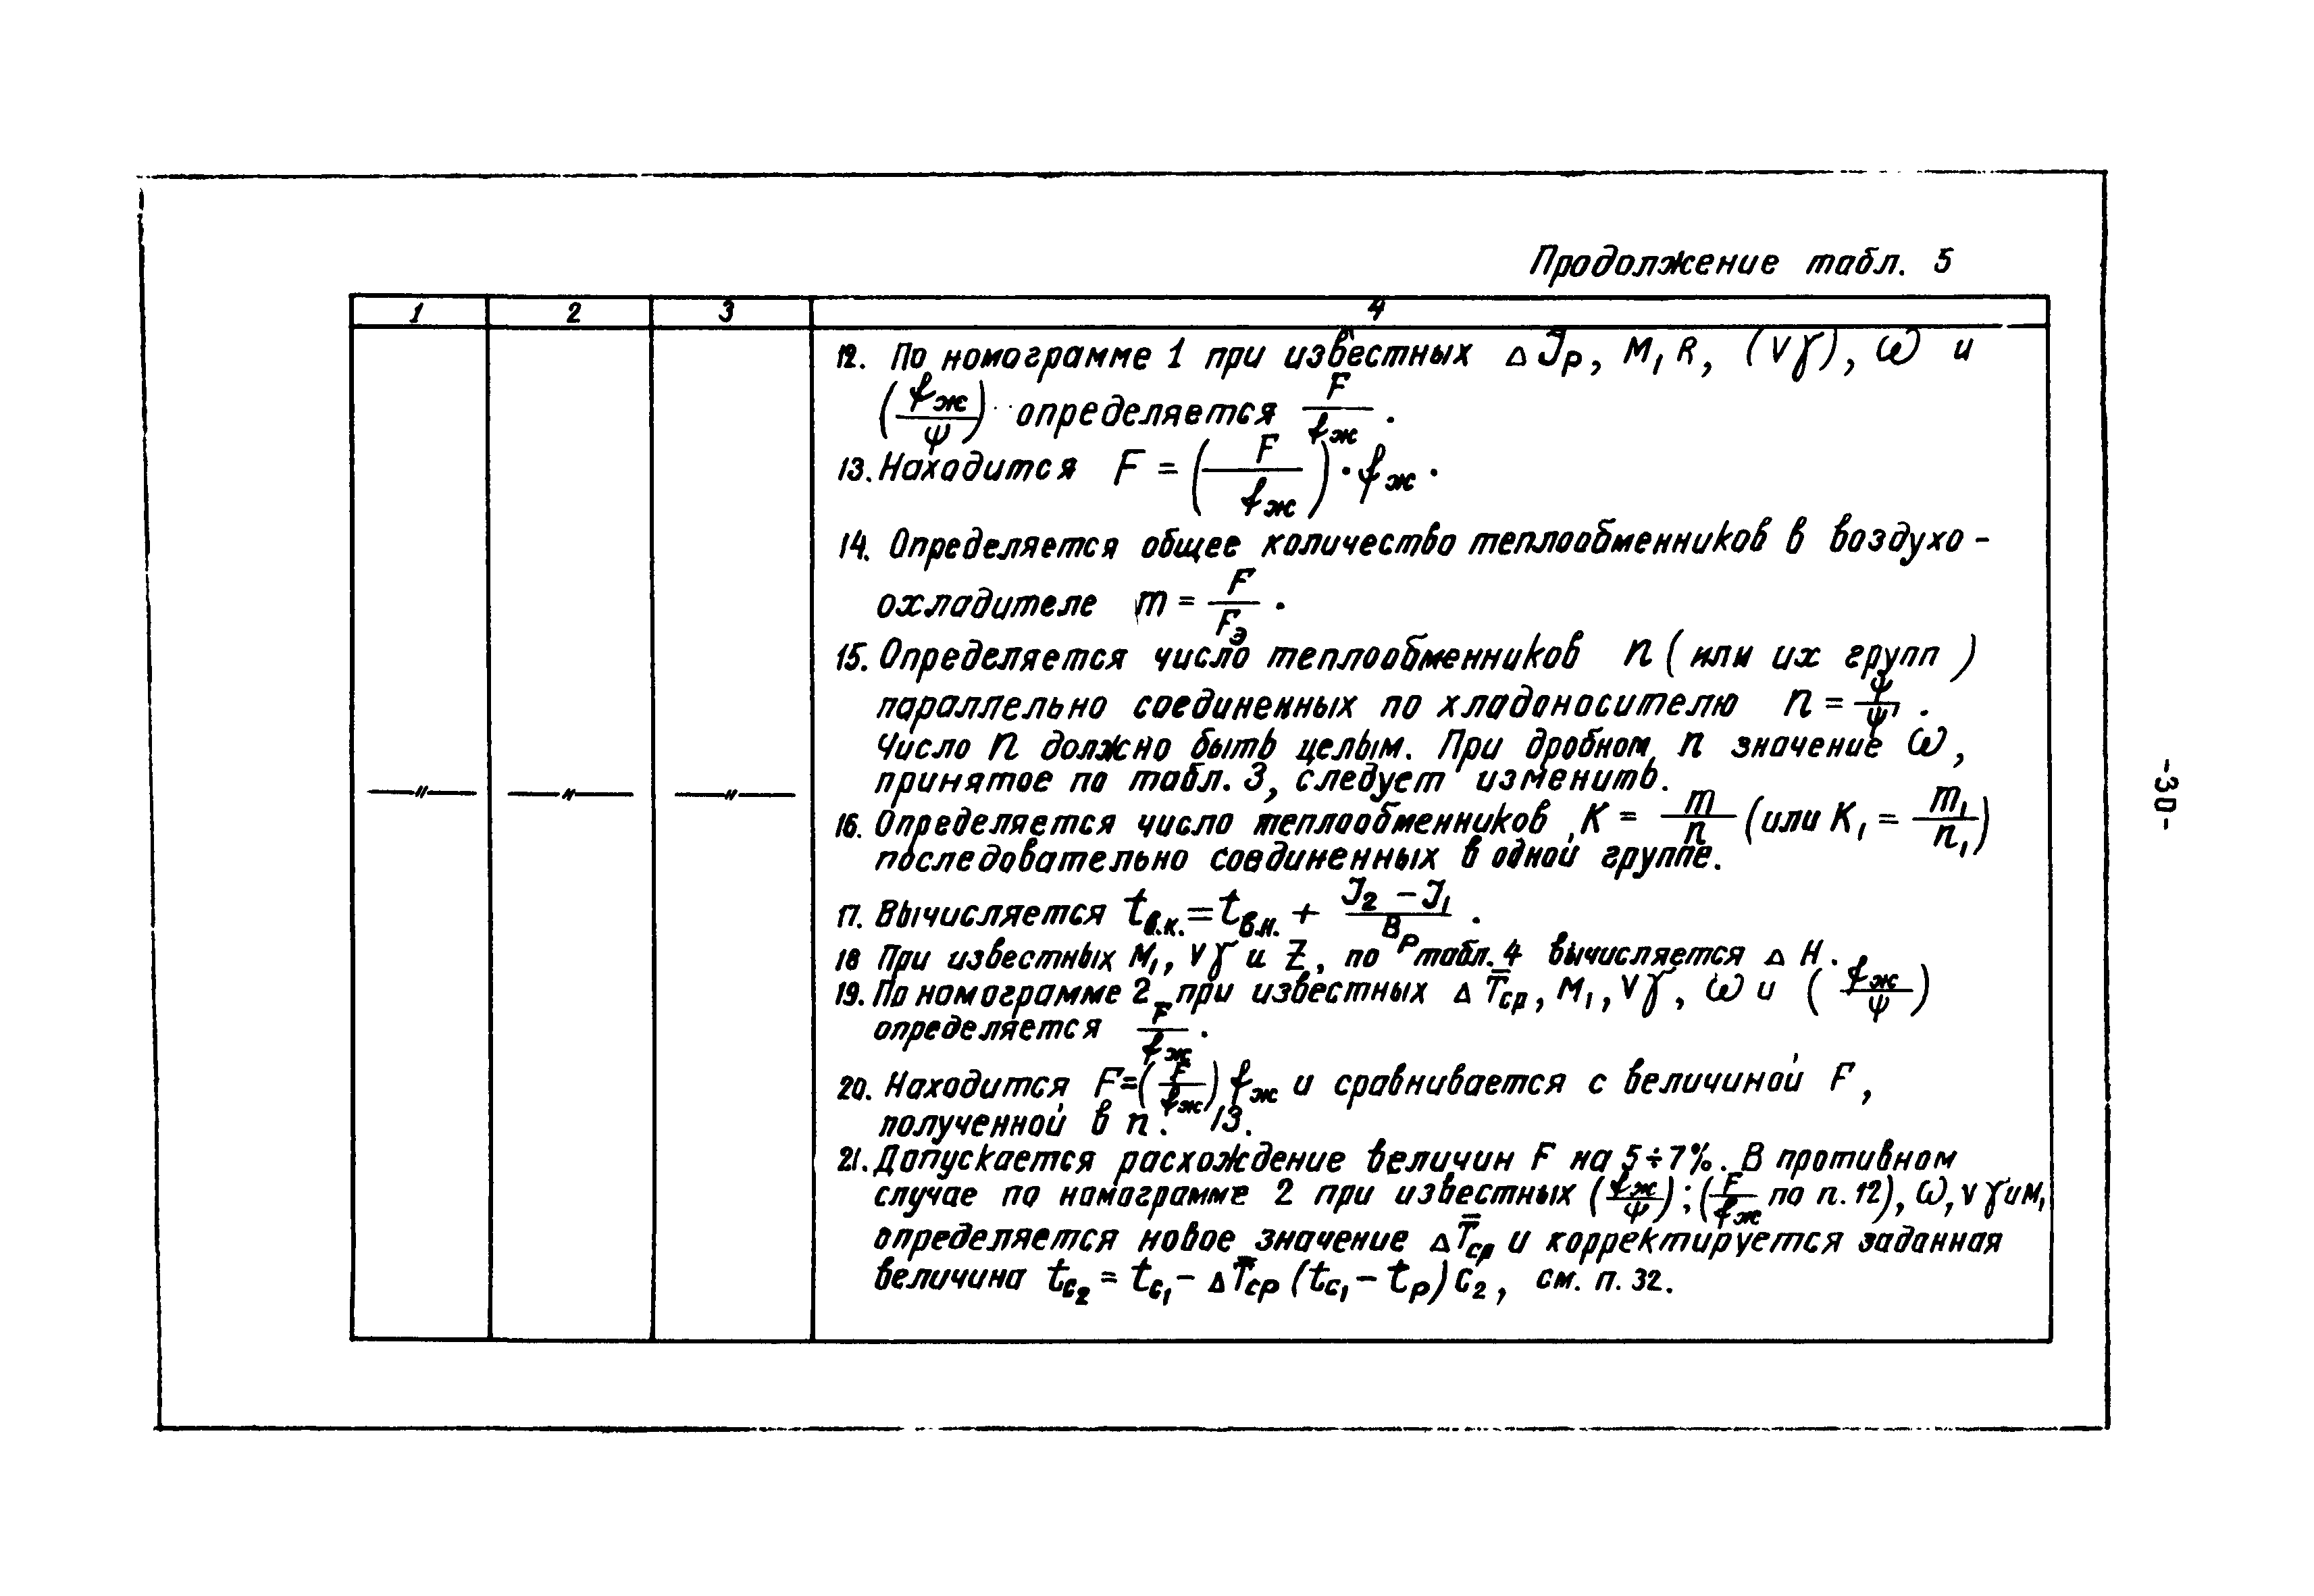 Продолжение табл. 5
1 2 3 4
12. По номограмме 1 при известных Δ J̄р, М₁ R, (vγ), ω и
(fж/ψ) определяется F/fж.
13. Находится F = (F/fж)·fж.
14. Определяется общее количество теплообменников в воздухо-
охладителе m = F/Fэ.
15. Определяется число теплообменников n (или их групп)
параллельно соединенных по хладоносителю n = ψ/ψ'.
Число n должно быть целым. При дробном n значение ω,
принятое по табл. 3, следует изменить.
—〃— —〃— —〃—
16. Определяется число теплообменников K = m/n (или K₁ = m₁/n₁)
последовательно соединенных в одной группе.
17. Вычисляется tв.к. = tв.н. + (J₂ - J₁)/Bр.
18 При известных М₁, vγ и Z, по табл. 4 вычисляется Δ H.
19. По номограмме 2 при известных Δ T̄ср, М₁, vγ, ω и (fж/ψ)
определяется F/fж.
20. Находится F=(F/fж) fж и сравнивается с величиной F,
полученной в п. 13.
21. Допускается расхождение величин F на 5÷7%. В противном
случае по номограмме 2 при известных (fж/ψ); (F/fж по п. 12), ω, vγ и М₁
определяется новое значение Δ T̄ср и корректируется заданная
величина tс₂ = tс₁ - Δ T̄ср (tс₁ - tр) C₂, см. п. 32.
-30-